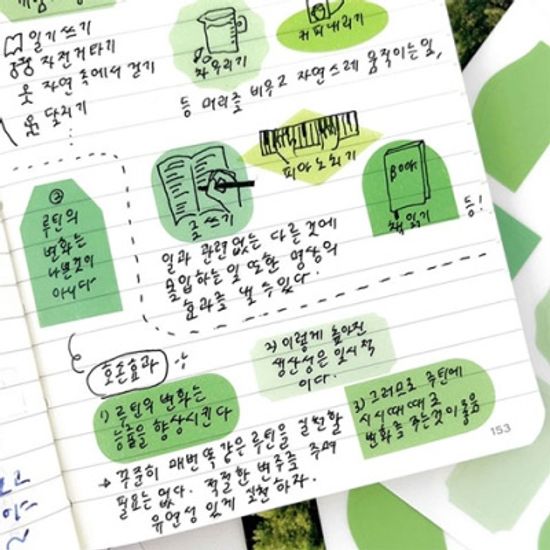 일기쓰기
자전거타기
자연 속에서 걷기
닦기
차우리기
커피내리기
등 머리를 비우고 자연스레 움직이는 일,
글쓰기
피아노치기
BOOK
책 읽기
등!
일과 관련없는 다른 것에
몰입하는 일 또한 명상의
효과를 낼 수 있다.
②
루틴의
변화는
나쁜것이
아니다
호손효과
1) 루틴의 변화는
능률을 향상시킨다
2) 이렇게 높아진
생산성은 일시적
이다.
3) 그러므로 루틴에
시시때때로
변화를 주는것이 좋음
→ 꾸준히 매번 똑같은 루틴을 실천할
필요는 없다. 적절한 변주를 주며
유연성 있게 실천하자.
153